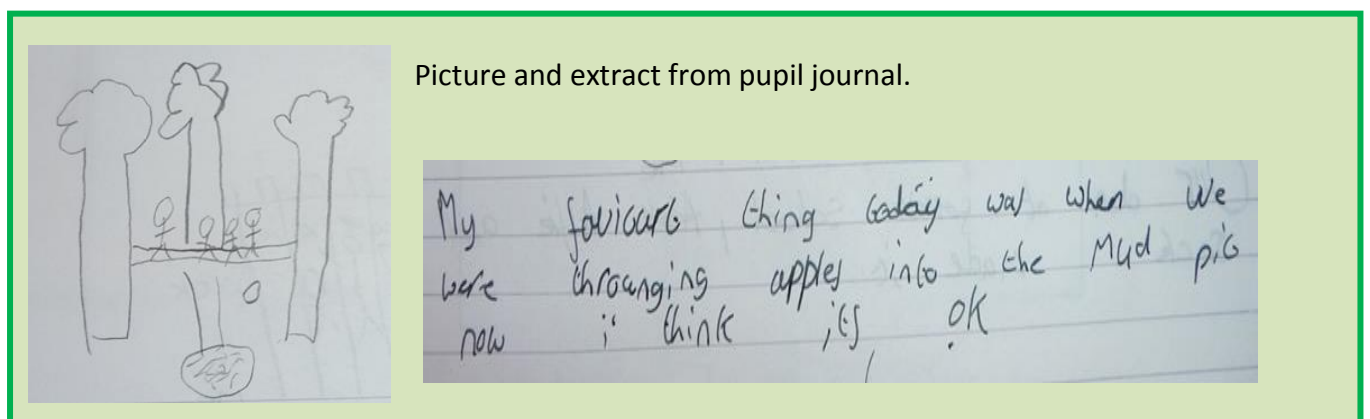 Picture and extract from pupil journal.
My favicurt thing today was when We
were thrownging apples into the Mud pit
now i think its ok